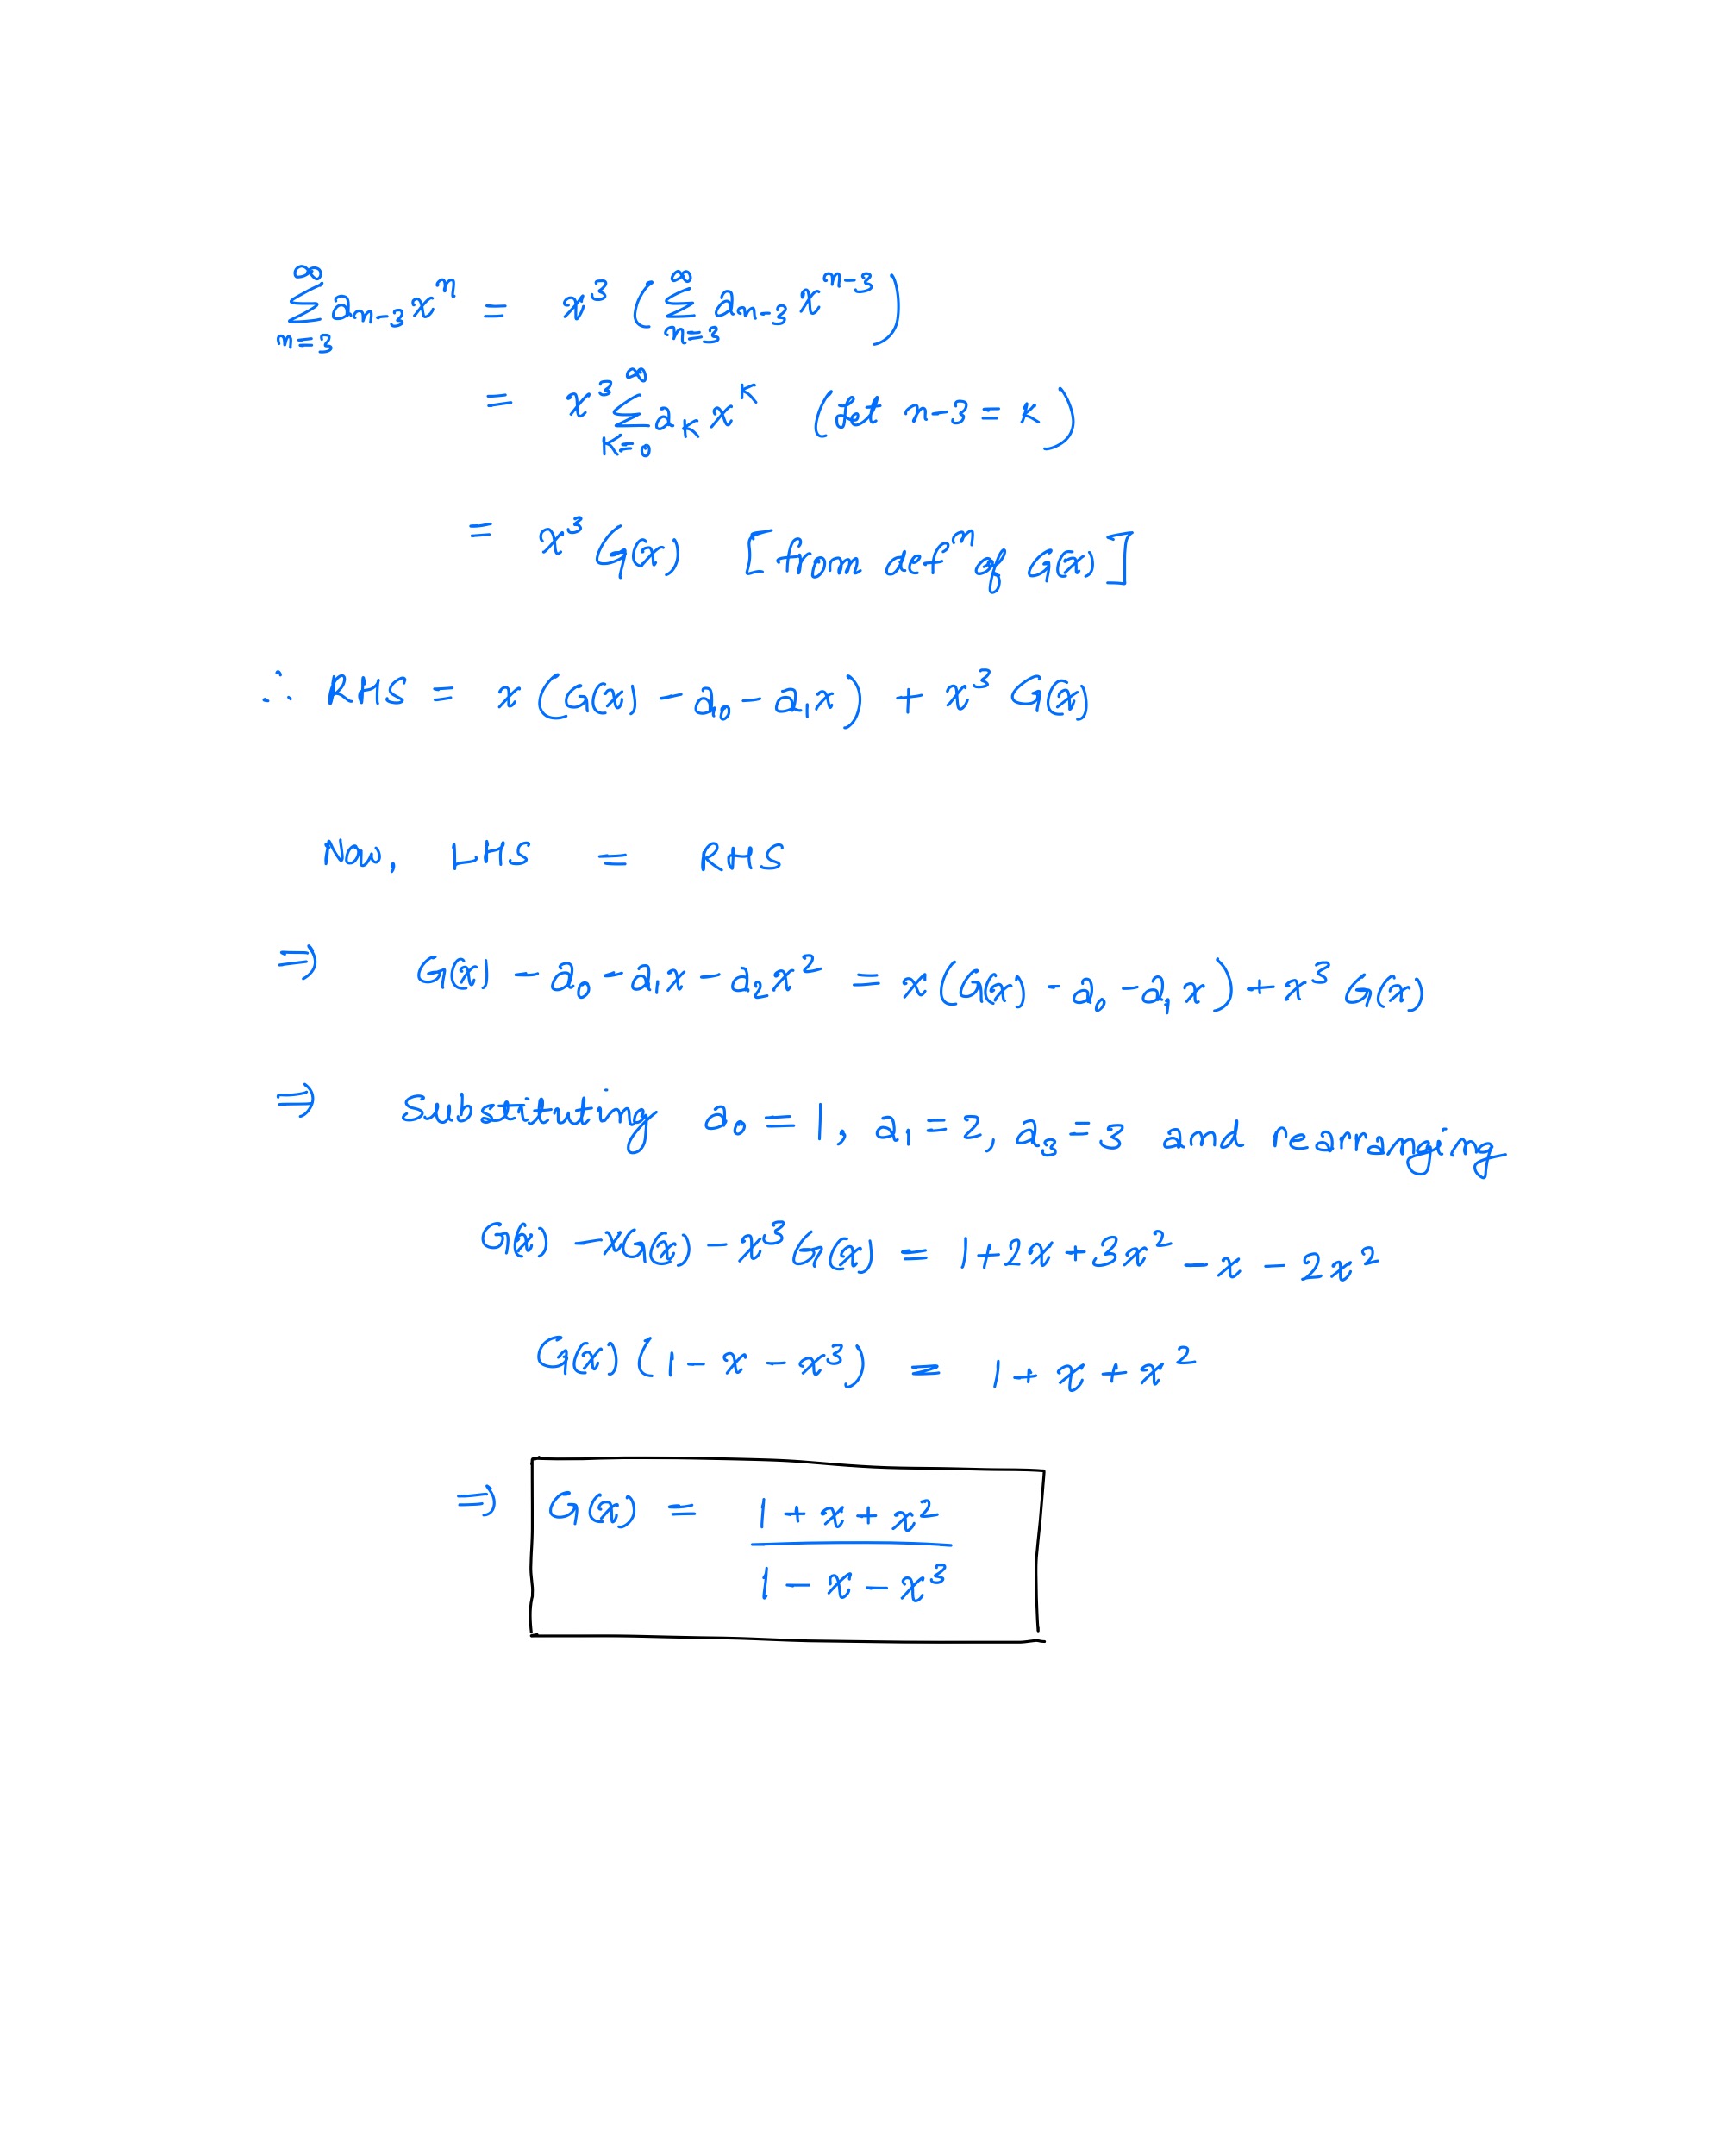 ∞∑n=3 aₙ₋₃xⁿ = x³ (∞∑n=3 aₙ₋₃xⁿ⁻³)
= x³ ∞∑K=0 a_K x^K (Let n-3 = K)
= x³ G(x) [from defⁿ of G(x)]
∴ RHS = x (G(x) - a₀ - a₁x) + x³ G(x)
Now, LHS = RHS
⇒ G(x) - a₀ - a₁x - a₂x² = x (G(x) - a₀ - a₁x) + x³ G(x)
⇒ Substituting a₀ = 1, a₁ = 2, a₃ = 3 and rearranging
G(x) - xG(x) - x³G(x) = 1 + 2x + 3x² - x - 2x²
G(x) (1 - x - x³) = 1 + x + x²
⇒ G(x) = 1 + x + x² / 1 - x - x³